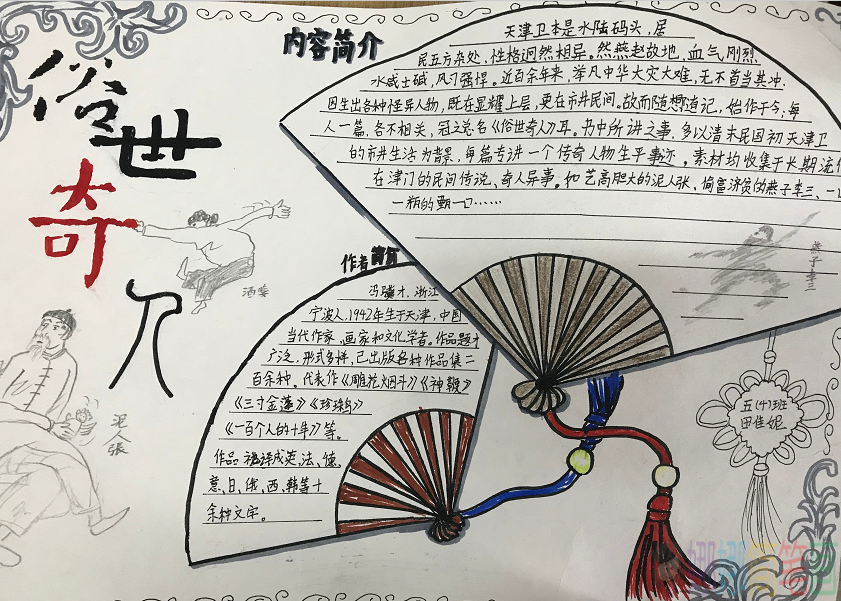 俗世奇人
内容简介
天津卫本是水陆码头，居
民五方杂处，性格迥然相异。然燕赵故地，血气刚烈
水咸土碱，风习强悍。近百余年来，举凡中华大灾大难，无不首当其冲，
因生出各种怪异人物，既在显耀上层，更在市井民间。故而随想随记，始作于今；每
人一篇，各不相关，冠之总名《俗世奇人》耳。书中所讲之事，多以清末民国初天津卫
的市井生活为背景，每篇专讲一个传奇人物生平事迹。素材均收集于长期流传
在津门的民间传说、奇人异事。如艺高胆大的泥人张，偷富济贫的燕子李三、一
一瓶的甄一口……
燕子李三
酒婆
泥人張
作者简介
冯骥才，浙江
宁波人，1942年生于天津，中国
当代作家、画家和文化学者。作品题才
广泛，形式多样，已出版各种作品集二
百余种，代表作《雕花烟斗》《神鞭》
《三寸金莲》《珍珠鸟》
《一百个人的十年》等。
作品被译成英、法、德、
意、日、俄、西、韩等十
余种文字。
五(4)班
田佳妮